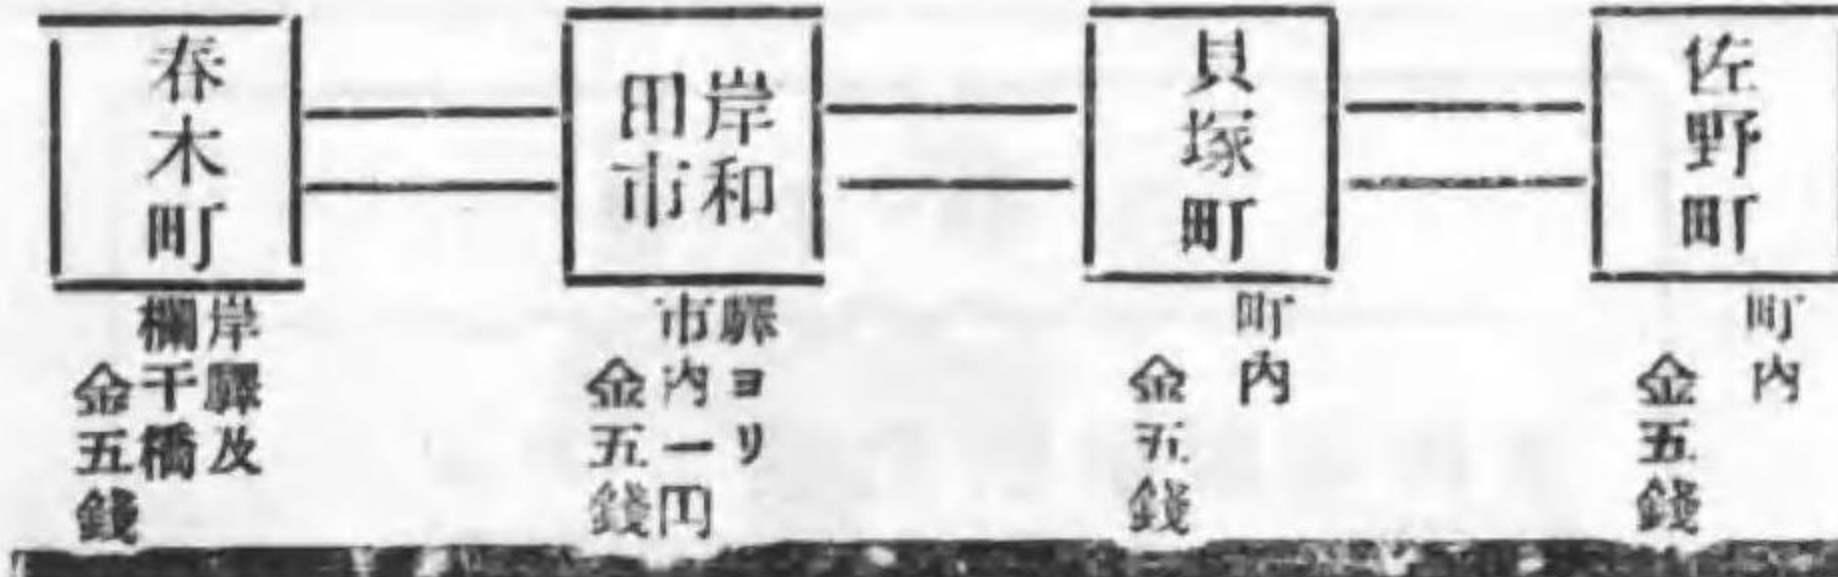 佐野町
町内
金五錢
貝塚町
町内
金五錢
岸和
田市
驛ヨリ
市内一円
金五錢
春木町
岸驛及
欄干橋
金五錢